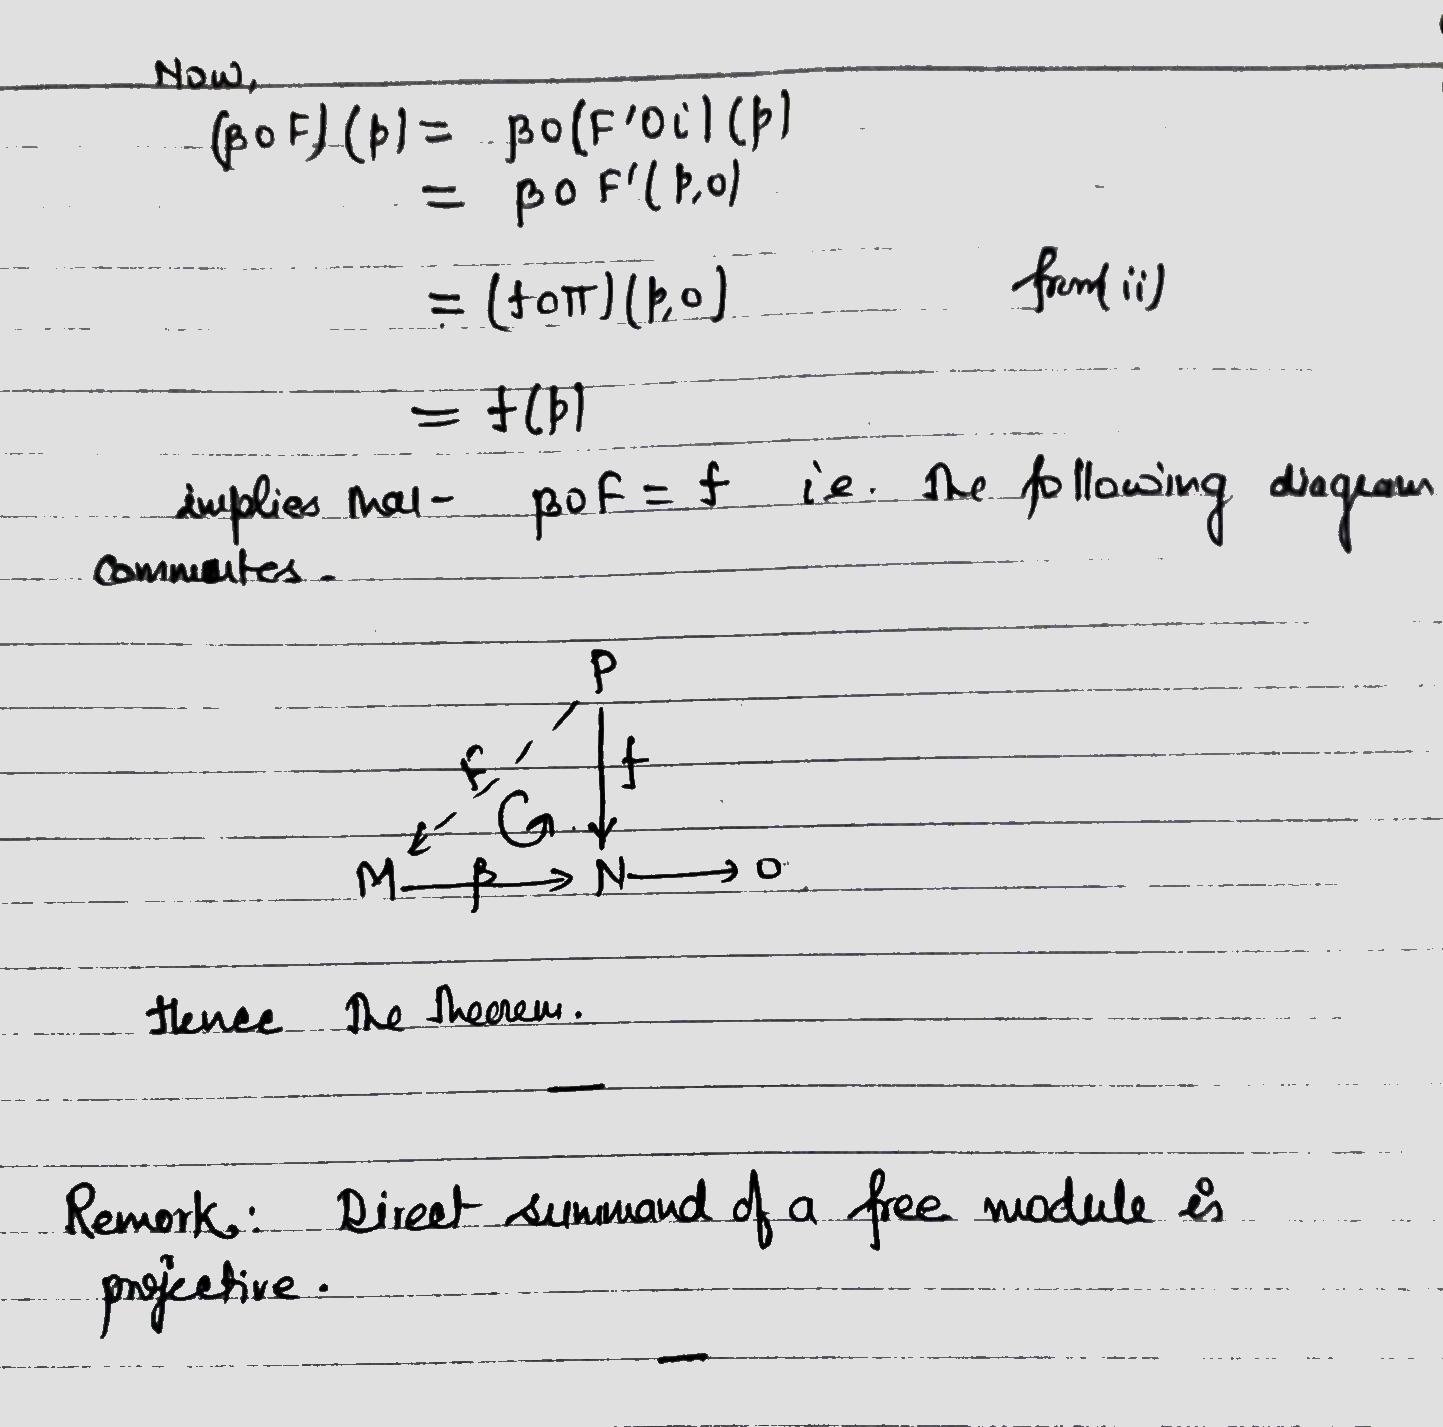 Now,
(βoF)(p) = βo(F'oi)(p)
= βo F'(p,o)
= (foπ)(p,o) from(ii)
= f(p)
implies that βoF = f i.e. the following diagram
commutes.
P
F f
M β N o
Hence the theorem.
Remark: Direct summand of a free module is
projective.